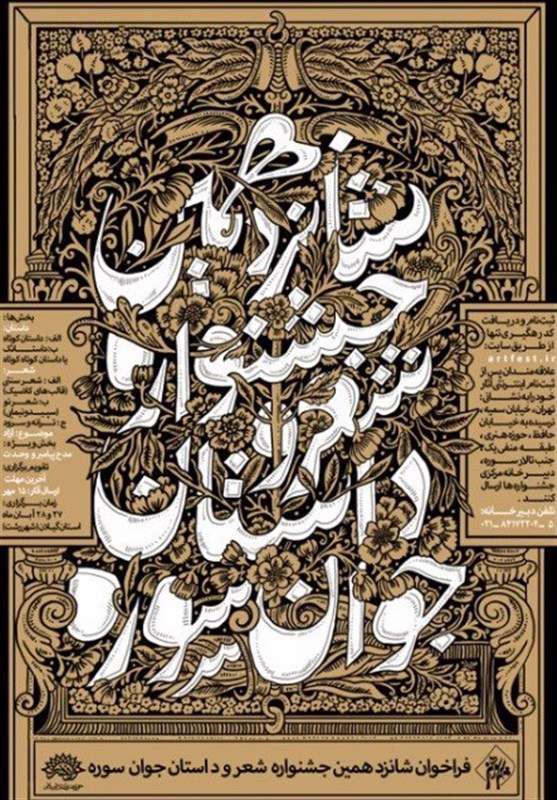 شانزدهمین
جشنواره
شعر و
داستان
جوان سوره
ثبت‌نام و دریافت
کد رهگیری تنها
از طریق سایت:
artfest.ir
علاقه‌مندان پس از
ثبت‌نام اینترنتی آثار
خود را به نشانی:
تهران، خیابان سمیه،
نرسیده به خیابان
حافظ، حوزه هنری،
طبقه منفی یک،
جنب تالار سوره،
دبیرخانه مرکزی
جشنواره‌ها ارسال
کنند.
تلفن دبیرخانه:
۰۲۱-۸۴۱۷۲۲۰۴-۵
بخش‌ها:
داستان:
الف: داستان کوتاه
ب: داستانک
یا داستان کوتاه کوتاه
شعر:
الف: شعر سنتی
(قالب‌های کلاسیک)
ب: شعر نو
(سپید - نیمایی)
ج: ترانه و سرود
موضوع: آزاد
بخش ویژه:
مدح پیامبر و وحدت
تقویم برگزاری:
آخرین مهلت
ارسال آثار: ۱۵ مهر
زمان برگزاری:
۲۷ و ۲۸ آبان ماه
استان گیلان (شهر رشت)
فراخوان شانزدهمین جشنواره شعر و داستان جوان سوره